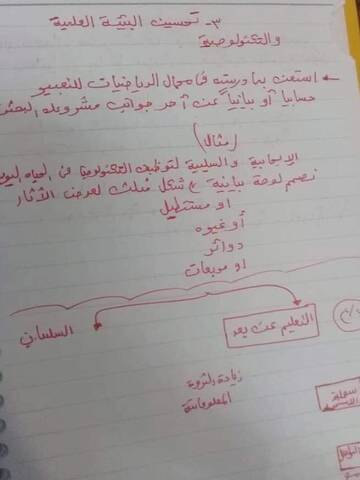 ٣- تحسين البيئة العلمية
والتكنولوجية
← استعن بما درسته في مجال الرياضيات للتعبير
حسابيا أو بيانياً عن أحد جوانب مشروعك البحثي
(مثال)
الايجابية والسلبية لتوظيف التكنولوجيا في الحياة اليوم
نصمم لوحة بيانية شكل مثلث لعرض الآثار
او مستطيل
أو غيره
دوائر
او مربعات
التعليم عن بعد
السلبيات
زيادة الثروة
المعلوماتية
سهلة